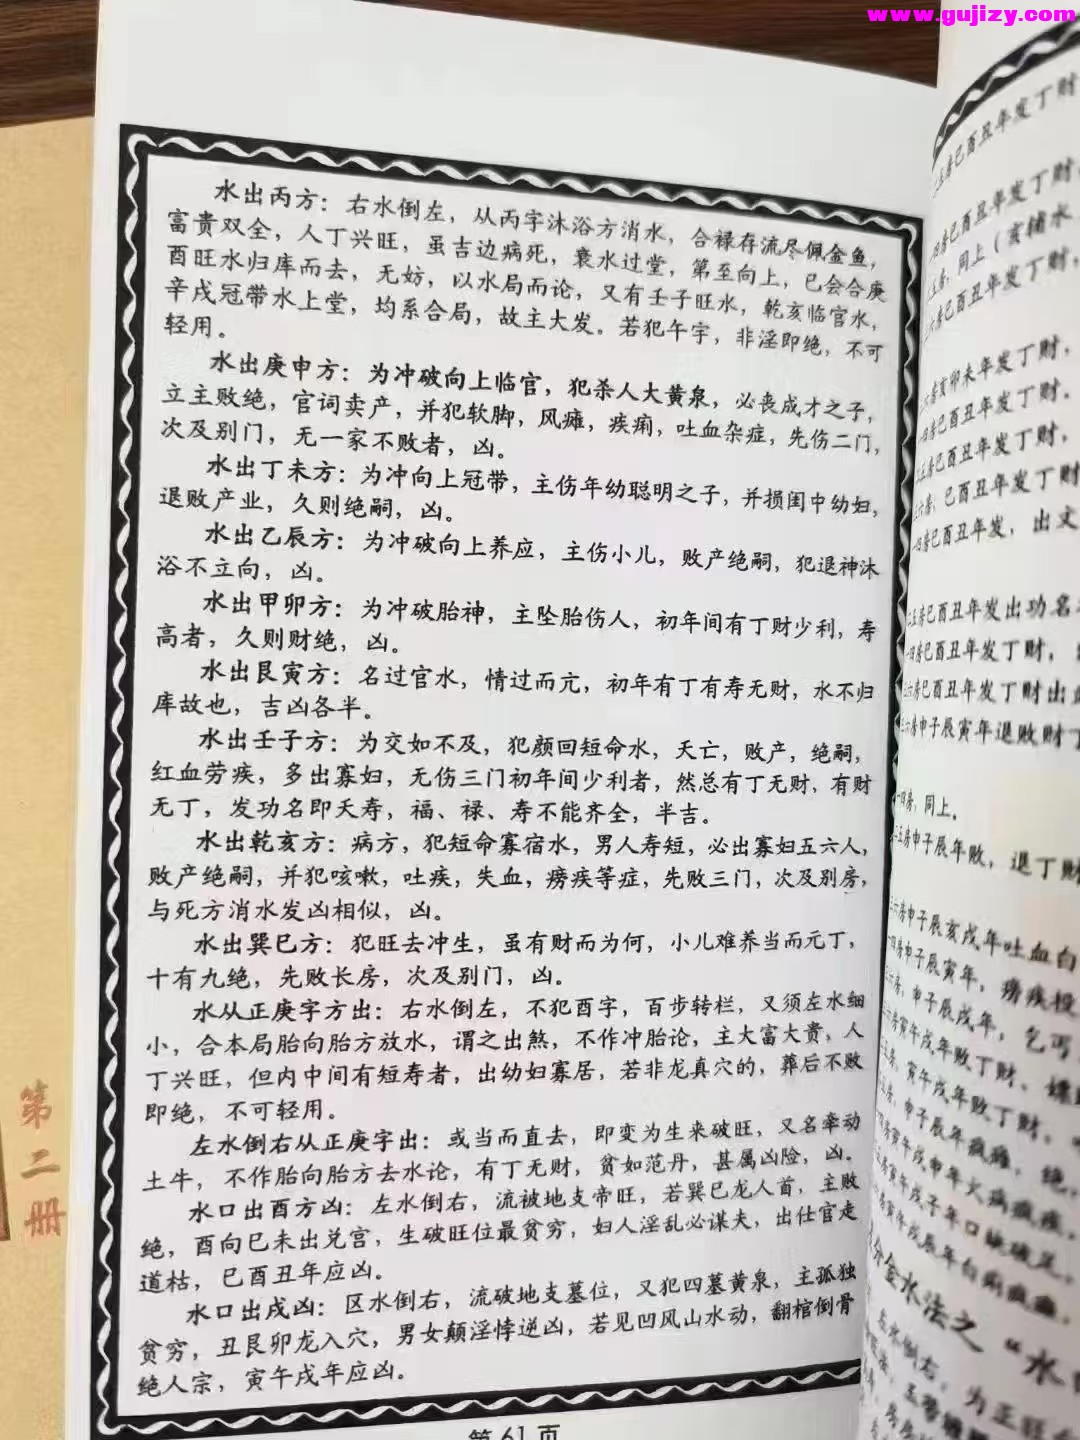 www.gujizy.com
水出丙方：右水倒左，从丙字沐浴方消水，合禄存流尽佩金鱼，
富贵双全，人丁兴旺，虽吉边病死，衰水过堂，第至向上，已会合庚
酉旺水归库而去，无妨，以水局而论，又有壬子旺水，乾亥临官水，
辛戌冠带水上堂，均系合局，故主大发。若犯午字，非淫即绝，不可
轻用。
水出庚申方：为冲破向上临官，犯杀人大黄泉，必丧成才之子，
立主败绝，官词卖产，并犯软脚，风瘫，疾痢，吐血杂症，先伤二门，
次及别门，无一家不败者，凶。
水出丁未方：为冲向上冠带，主伤年幼聪明之子，并损闺中幼妇，
退败产业，久则绝嗣，凶。
水出乙辰方：为冲破向上养应，主伤小儿，败产绝嗣，犯退神沐
浴不立向，凶。
水出甲卯方：为冲破胎神，主坠胎伤人，初年间有丁财少利，寿
高者，久则财绝，凶。
水出艮寅方：名过官水，情过而亢，初年有丁有寿无财，水不归
库故也，吉凶各半。
水出壬子方：为交如不及，犯颜回短命水，夭亡，败产，绝嗣，
红血劳疾，多出寡妇，无伤三门初年间少利者，然总有丁无财，有财
无丁，发功名即夭寿，福、禄、寿不能齐全，半吉。
水出乾亥方：病方，犯短命寡宿水，男人寿短，必出寡妇五六人，
败产绝嗣，并犯咳嗽，吐疾，失血，痨疾等症，先败三门，次及别房，
与死方消水发凶相似，凶。
水出巽巳方：犯旺去冲生，虽有财而为何，小儿难养当而元丁，
十有九绝，先败长房，次及别门，凶。
水从正庚字方出：右水倒左，不犯酉字，百步转栏，又须左水细
小，合本局胎向胎方放水，谓之出煞，不作冲胎论，主大富大贵，人
丁兴旺，但内中间有短寿者，出幼妇寡居，若非龙真穴的，葬后不败
即绝，不可轻用。
左水倒右从正庚字出：或当而直去，即变为生来破旺，又名牵动
土牛，不作胎向胎方去水论，有丁无财，贫如范丹，甚属凶险，凶。
水口出酉方凶：左水倒右，流被地支帝旺，若巽巳龙人首，主败
绝，酉向巳未出兑宫，生破旺位最贫穷，妇人淫乱必谋夫，出仕官走
道枯，巳酉丑年应凶。
水口出戌凶：区水倒右，流破地支墓位，又犯四墓黄泉，主孤独
贫穷，丑艮卯龙入穴，男女颠淫悖逆凶，若见凹风山水动，翻棺倒骨
绝人宗，寅午戌年应凶。
第61页
第二册
五房巳酉丑年发丁财
四房巳酉丑年发丁财，
五房，同上（亥辅水
六房巳酉丑年发丁财，
六房亥卯未年发丁财，
四房巳酉丑年发丁财．
五房巳酉丑年发丁财，
六房，巳酉丑年发丁财
四房巳酉丑年发，出文
五房巳酉丑年发出功名
四房巳酉丑年发丁财，
六房巳酉丑年发丁财出
六房申子辰寅年退败财丁
四房，同上。
五房申子辰年败，退丁财
六房申子辰亥戌年吐血白
四房申子辰寅年，痨疾投
六房，申子辰戌年，乞丐
六房寅午戌年败丁财、
五房，寅午戌年败丁财．
房，申子辰年疯瘫，绝，
四房寅午戌申年火病疯疾，
五房寅午戌子年口缺破足，
六房寅午戌辰年白痢疯瘫，
分金水法之“水
左水倒右，为正旺